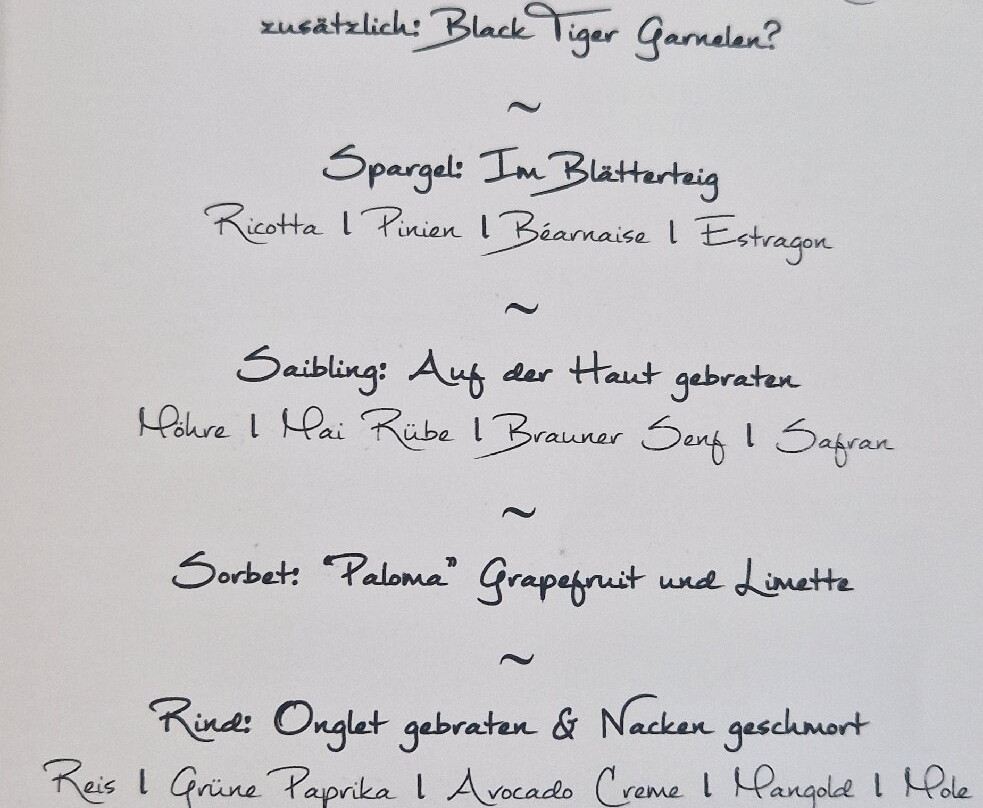 zusätzlich: Black Tiger Garnelen?
~
Spargel: Im Blätterteig
Ricotta | Pinien | Béarnaise | Estragon
~
Saibling: Auf der Haut gebraten
Möhre | Mai Rübe | Brauner Senf | Safran
~
Sorbet: "Paloma" Grapefruit und Limette
~
Rind: Onglet gebraten & Nacken geschmort
Reis | Grüne Paprika | Avocado Creme | Mangold | Mole